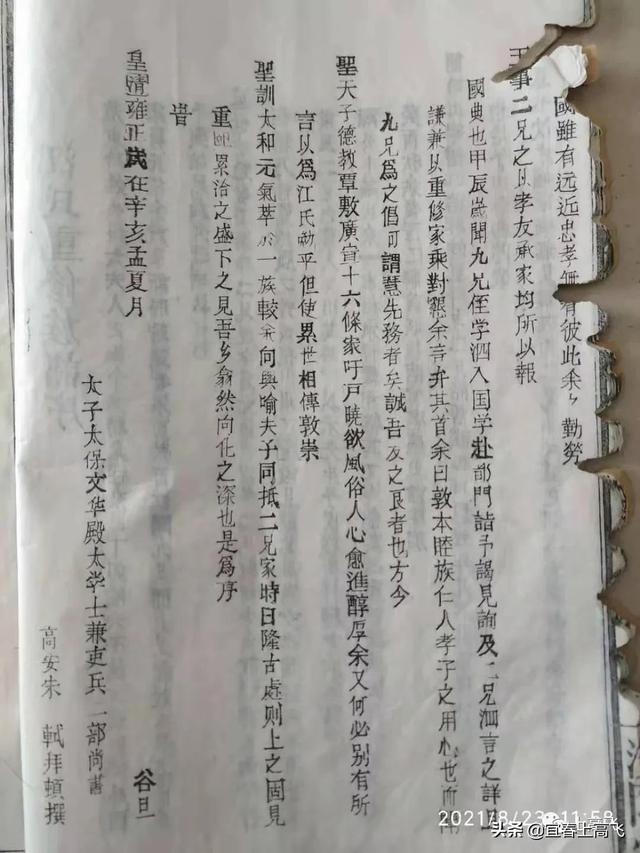 國雖有远近忠孝無有彼此余以勤勞
王事二兄之以孝友承家均所以報
國典也甲辰歲聞九兄侄学泗入国学赴部門詣予謁見詢及二兄泗言之詳
謙兼以重修家乘對懇余言弁其首余曰敦本睦族仁人孝子之用心也而
九兄為之倡可謂慧先務者矣誠吾友之良者也方今
聖天子德教覃敷廣宣十六條家吁戶曉欲風俗人心愈進醇厚余又何必别有所
言以為江氏勗乎但使累世相傳敦崇
聖訓太和元氣萃於一族較余何與喻夫子同抵二兄家時日隆古處则上之固見
重熙累洽之盛下之見吾乡翕然向化之深也是為序
旹
皇清雍正歲在辛亥孟夏月 谷旦
太子太保文华殿太学士兼吏兵二部尚書
高安朱 軾拜頓撰
2021/8/23 11:59
头条 @宜春上高飞